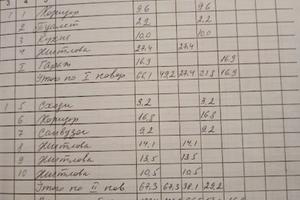 1 1 Коридор 9,6 9,6
2 Туалет 2,2 2,2
3 Кухня 10,0 10,0
4 Жилая 27,4 27,4
I Гараж 16,9 16,9
Итого по I 66,1 49,2 27,4 21,8 16,9
1 5 3,2 3,2
6 Коридор 16,8 16,8
7 Санузел 9,2 9,2
8 Жилая 14,1 14,1
9 Жилая 13,5 13,5
10 Жилая 10,5 10,5
Итого по II пов 67,3 67,3 38,1 29,2